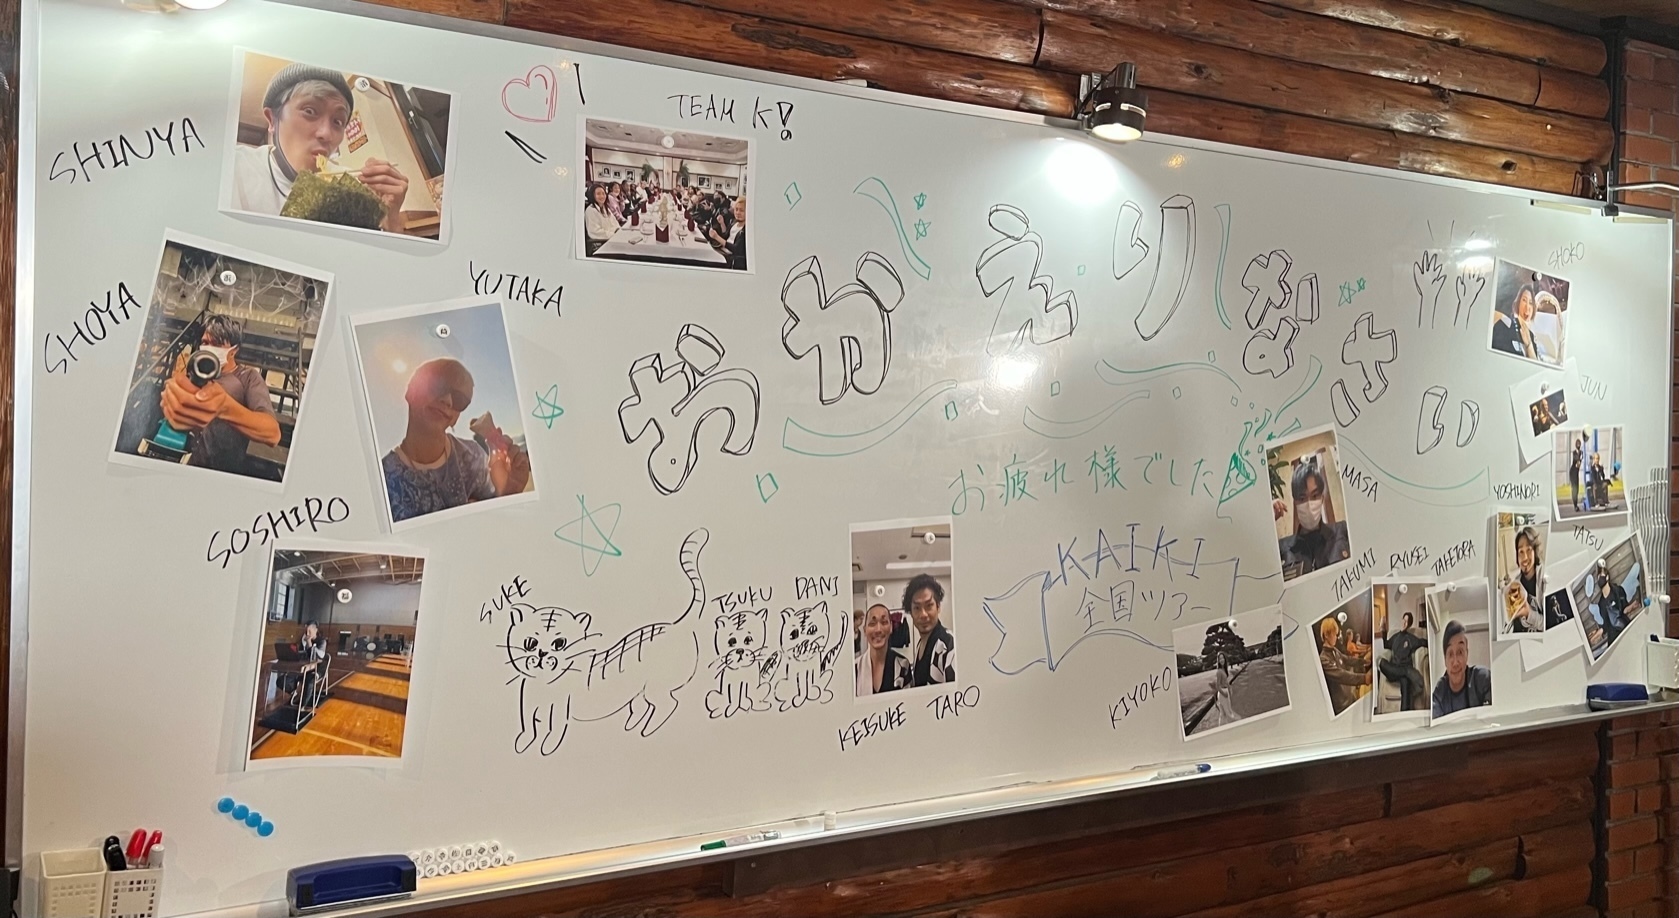 SHINYA
TEAM K!
SHOYA
YUTAKA
おかえりなさい
SHOKO
JUN
お疲れ様でした
MASA
YOSHINORI
SOSHIRO
KAIKI
全国ツアー
TATSU
SUKE
TSUKU
DANI
TAKUMI
RYUSEI
TAKETORA
KEISUKE TARO
KIYOKO